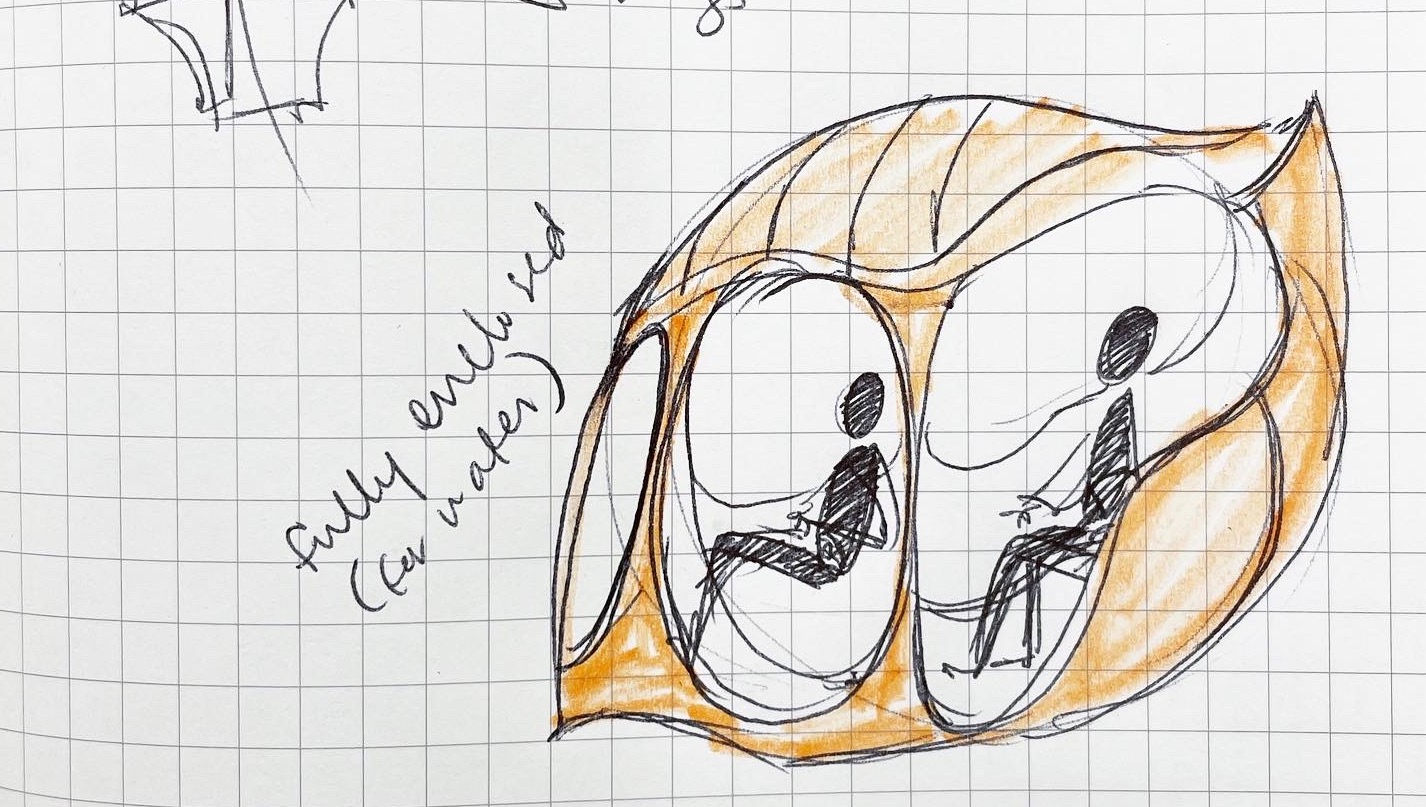 fully enclosed
(for water)